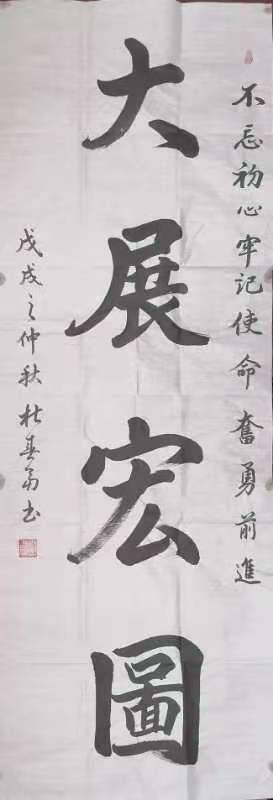 不忘初心牢记使命奮勇前進
大展宏圖
戊戌之仲秋杜春
书